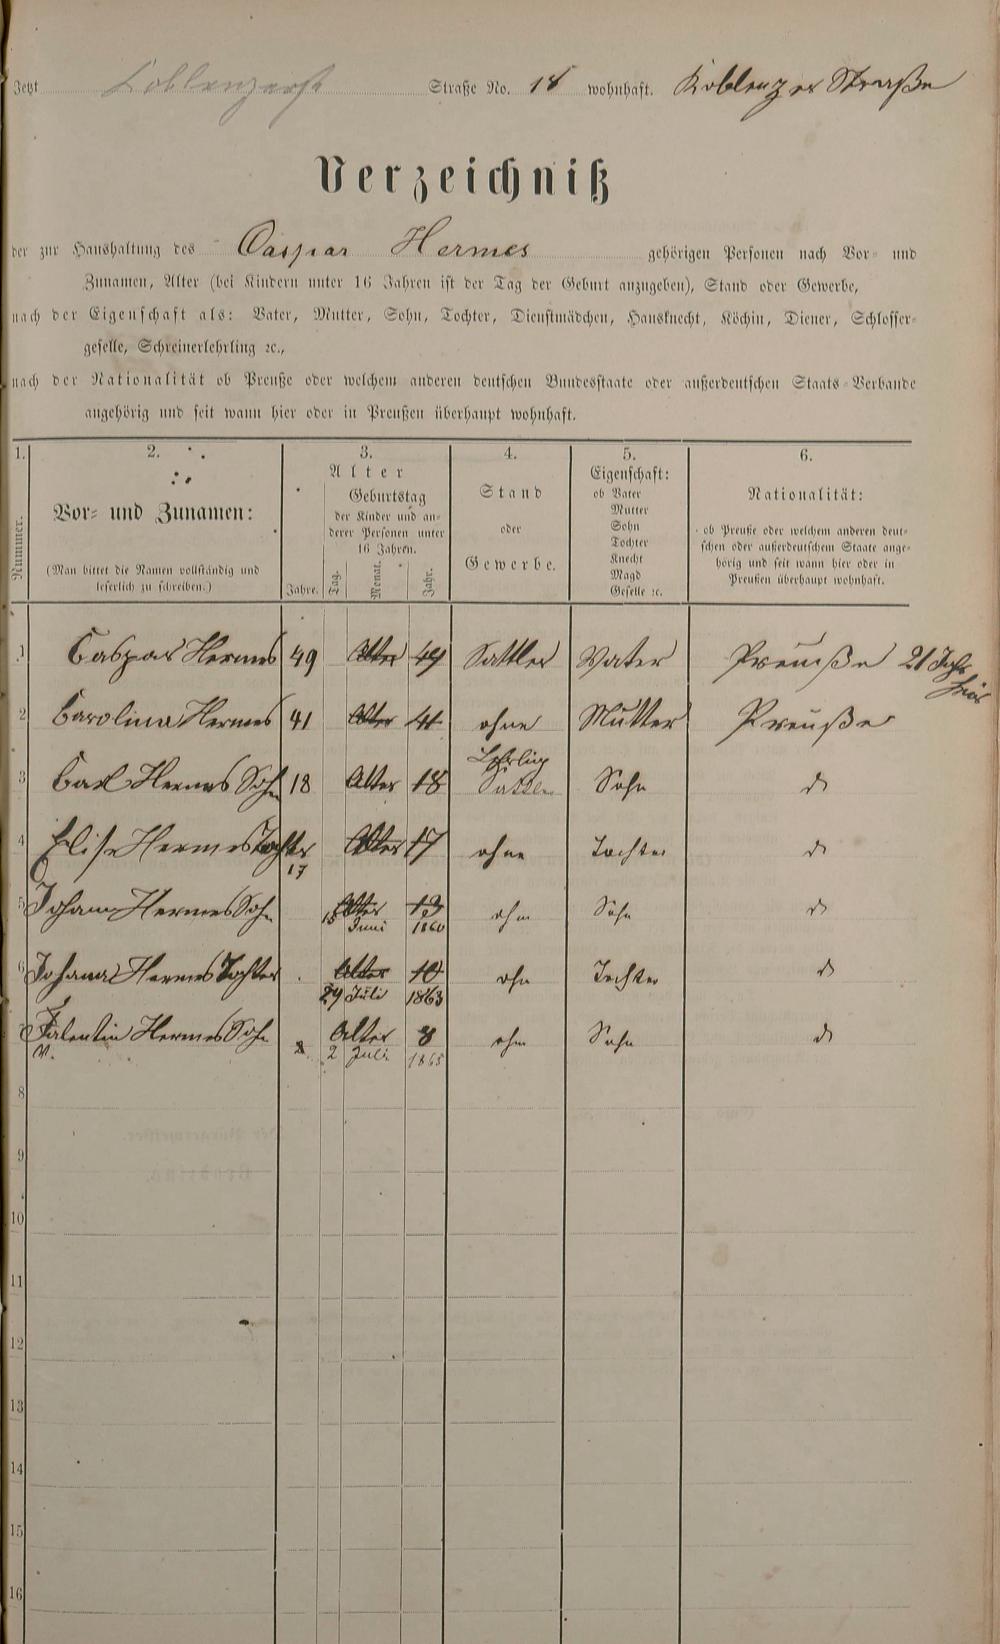 Jetzt Coblenzerst Straße No. 18 wohnhaft. Koblenzer Straaße
Verzeichniß
der zur Haushaltung des Caspar Hermes gehörigen Personen nach Vor- und
Zunamen, Alter (bei Kindern unter 16 Jahren ist der Tag der Geburt anzugeben), Stand oder Gewerbe,
nach der Eigenschaft als: Vater, Mutter, Sohn, Tochter, Dienstmädchen, Hausknecht, Köchin, Diener, Schlosser-
geselle, Schreinerlehrling ꝛc.,
nach der Nationalität ob Preuße oder welchem anderen deutschen Bundesstaate oder außerdeutschen Staats-Verbande
angehörig und seit wann hier oder in Preußen überhaupt wohnhaft.
1. 2. 3. 4. 5. 6.
Nummer.
Vor- und Zunamen:
(Man bittet die Namen vollständig und
leserlich zu schreiben.)
Alter
Jahre.
Geburtstag
der Kinder und an-
derer Personen unter
16 Jahren.
Tag. Monat. Jahr.
Stand
oder
Gewerbe.
Eigenschaft:
ob Vater
Mutter
Sohn
Tochter
Knecht
Magd
Geselle ꝛc.
Nationalität:
ob Preuße oder welchem anderen deut-
schen oder außerdeutschem Staate ange-
hörig und seit wann hier oder in
Preußen überhaupt wohnhaft.
1 Caspar Hermes 49 Alter 49 Sattler Vater Preuße 21 Jahr
hier
2 Carolina Hermes 41 Alter 41 ohne Mutter Preuße
Lehrling
3 Carl Hermes Sohn 18 Alter 18 Sattler Sohn do
4 Elise Hermes Tochter Alter 17 ohne Tochter do
17
5 Johann Hermes Sohn Alter 13 ohne Sohn do
15 Juni 1860
6 Johana Hermes Tochter Alter 10 ohne Tochter do
29 Juli 1863
7 Falentin Hermes Sohn Alter 8 ohne Sohn do
V. 8 2 Juli 1865
8
9
10
11
12
13
14
15
16